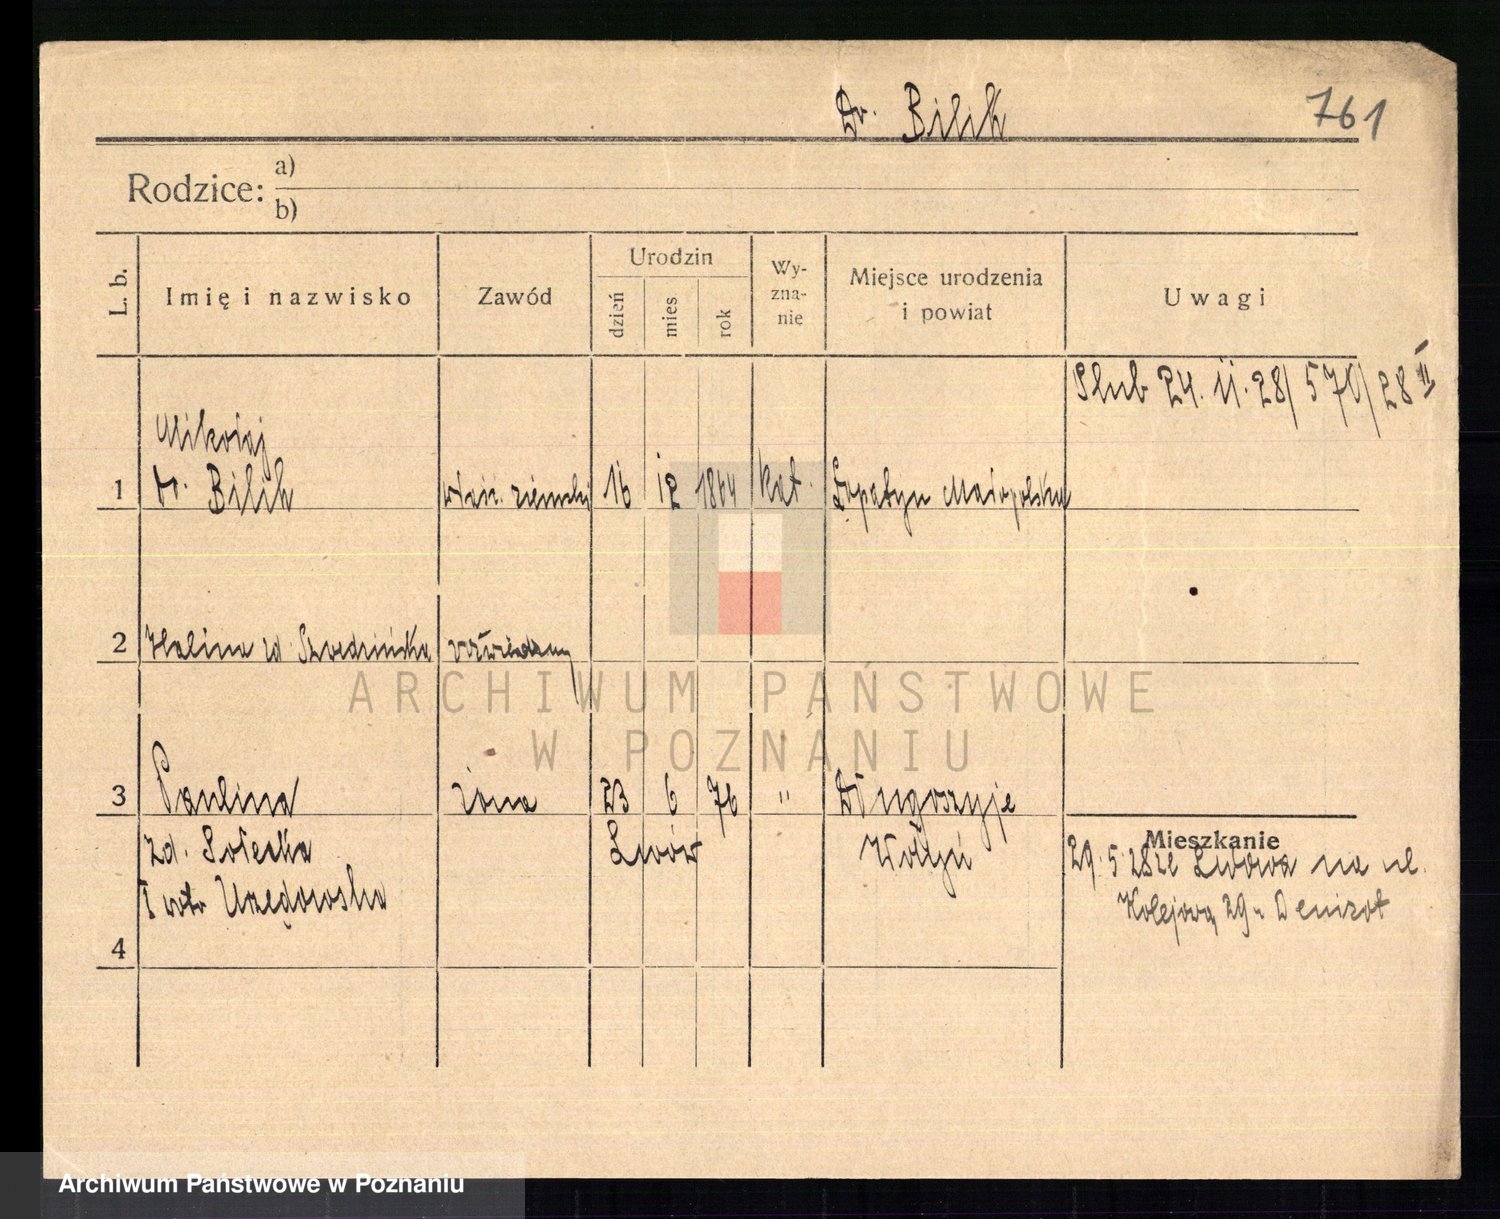 Dr. Bilik
761
Rodzice:
a)
b)
L. b.
Imię i nazwisko
Zawód
Urodzin
dzień
mies
rok
Wy-
zna-
nie
Miejsce urodzenia
i powiat
Uwagi
Ślub 24. 11. 28/ 570/28 II
Mikołaj
1 Dr. Bilik właśc. ziemski 16 12 1864 kat. Łopatyn Małopolska
2 Halina zd
3 Paulina żona 23 6 76 " Długoszyje
zd. Sołecka Lwów Wołyń
I voto Urzędowska
4
Mieszkanie
29. 5. 28 ze Lwowa na ul.
Kolejową 29 u Denizot
ARCHIWUM PAŃSTWOWE
W POZNANIU
Archiwum Państwowe w Poznaniu